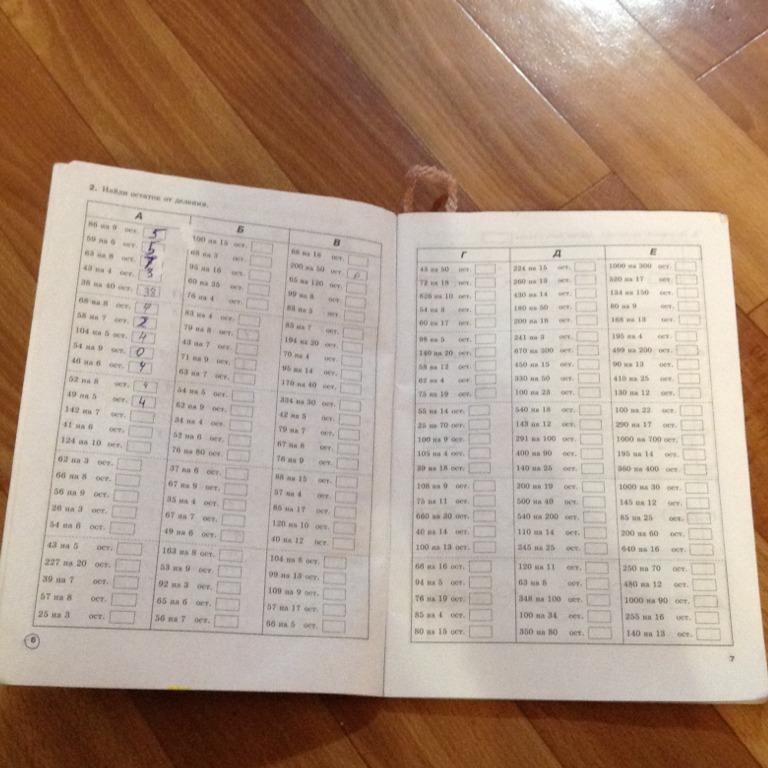 2. Найди остаток от деления.
А
86 на 9 ост. 5
59 на 6 ост. 5
63 на 8 ост.
43 на 4 ост. 3
38 на 40 ост. 38
68 на 8 ост. 4
58 на 7 ост. 2
104 на 5 ост. 4
54 на 9 ост. 0
46 на 6 ост. 4
52 на 8 ост. 4
49 на 5 ост. 4
142 на 7 ост.
41 на 6 ост.
124 на 10 ост.
62 на 3 ост.
66 на 8 ост.
56 на 9 ост.
26 на 3 ост.
54 на 6 ост.
43 на 5 ост.
227 на 20 ост.
39 на 7 ост.
57 на 8 ост.
25 на 3 ост.
Б
100 на 15 ост.
68 на 3 ост.
95 на 16 ост.
60 на 35 ост.
76 на 4 ост.
83 на 4 ост.
79 на 8 ост.
43 на 7 ост.
71 на 9 ост.
63 на 7 ост.
54 на 5 ост.
62 на 9 ост.
34 на 4 ост.
52 на 6 ост.
76 на 80 ост.
37 на 6 ост.
67 на 9 ост.
35 на 4 ост.
67 на 7 ост.
49 на 6 ост.
163 на 8 ост.
53 на 9 ост.
92 на 3 ост.
65 на 6 ост.
56 на 7 ост.
В
68 на 16 ост.
200 на 50 ост. 0
65 на 120 ост.
99 на 8 ост.
88 на 5 ост.
85 на 7 ост.
194 на 20 ост.
70 на 4 ост.
95 на 14 ост.
170 на 40 ост.
334 на 30 ост.
42 на 5 ост.
79 на 7 ост.
67 на 8 ост.
76 на 9 ост.
88 на 15 ост.
57 на 4 ост.
85 на 17 ост.
120 на 10 ост.
40 на 12 ост.
104 на 6 ост.
99 на 13 ост.
109 на 9 ост.
57 на 17 ост.
66 на 5 ост.
6
Г
43 на 50 ост.
72 на 18 ост.
626 на 10 ост.
54 на 8 ост.
60 на 17 ост.
98 на 5 ост.
140 на 20 ост.
58 на 12 ост.
62 на 4 ост.
75 на 19 ост.
55 на 14 ост.
25 на 70 ост.
100 на 9 ост.
105 на 4 ост.
39 на 18 ост.
108 на 9 ост.
75 на 11 ост.
660 на 30 ост.
40 на 14 ост.
100 на 13 ост.
66 на 16 ост.
94 на 5 ост.
76 на 19 ост.
85 на 4 ост.
80 на 15 ост.
Д
224 на 15 ост.
260 на 13 ост.
430 на 14 ост.
180 на 50 ост.
200 на 16 ост.
241 на 3 ост.
670 на 300 ост.
450 на 15 ост.
330 на 50 ост.
100 на 23 ост.
540 на 18 ост.
143 на 12 ост.
291 на 100 ост.
400 на 90 ост.
140 на 25 ост.
200 на 19 ост.
500 на 40 ост.
540 на 200 ост.
110 на 14 ост.
245 на 25 ост.
120 на 11 ост.
63 на 8 ост.
348 на 100 ост.
100 на 34 ост.
350 на 80 ост.
Е
1000 на 300 ост.
520 на 17 ост.
134 на 150 ост.
80 на 9 ост.
168 на 13 ост.
195 на 4 ост.
499 на 200 ост.
90 на 13 ост.
410 на 25 ост.
130 на 12 ост.
100 на 22 ост.
290 на 17 ост.
1000 на 700 ост.
195 на 14 ост.
360 на 400 ост.
1000 на 30 ост.
145 на 12 ост.
85 на 25 ост.
200 на 60 ост.
640 на 16 ост.
250 на 70 ост.
480 на 12 ост.
1000 на 90 ост.
255 на 16 ост.
140 на 13 ост.
7